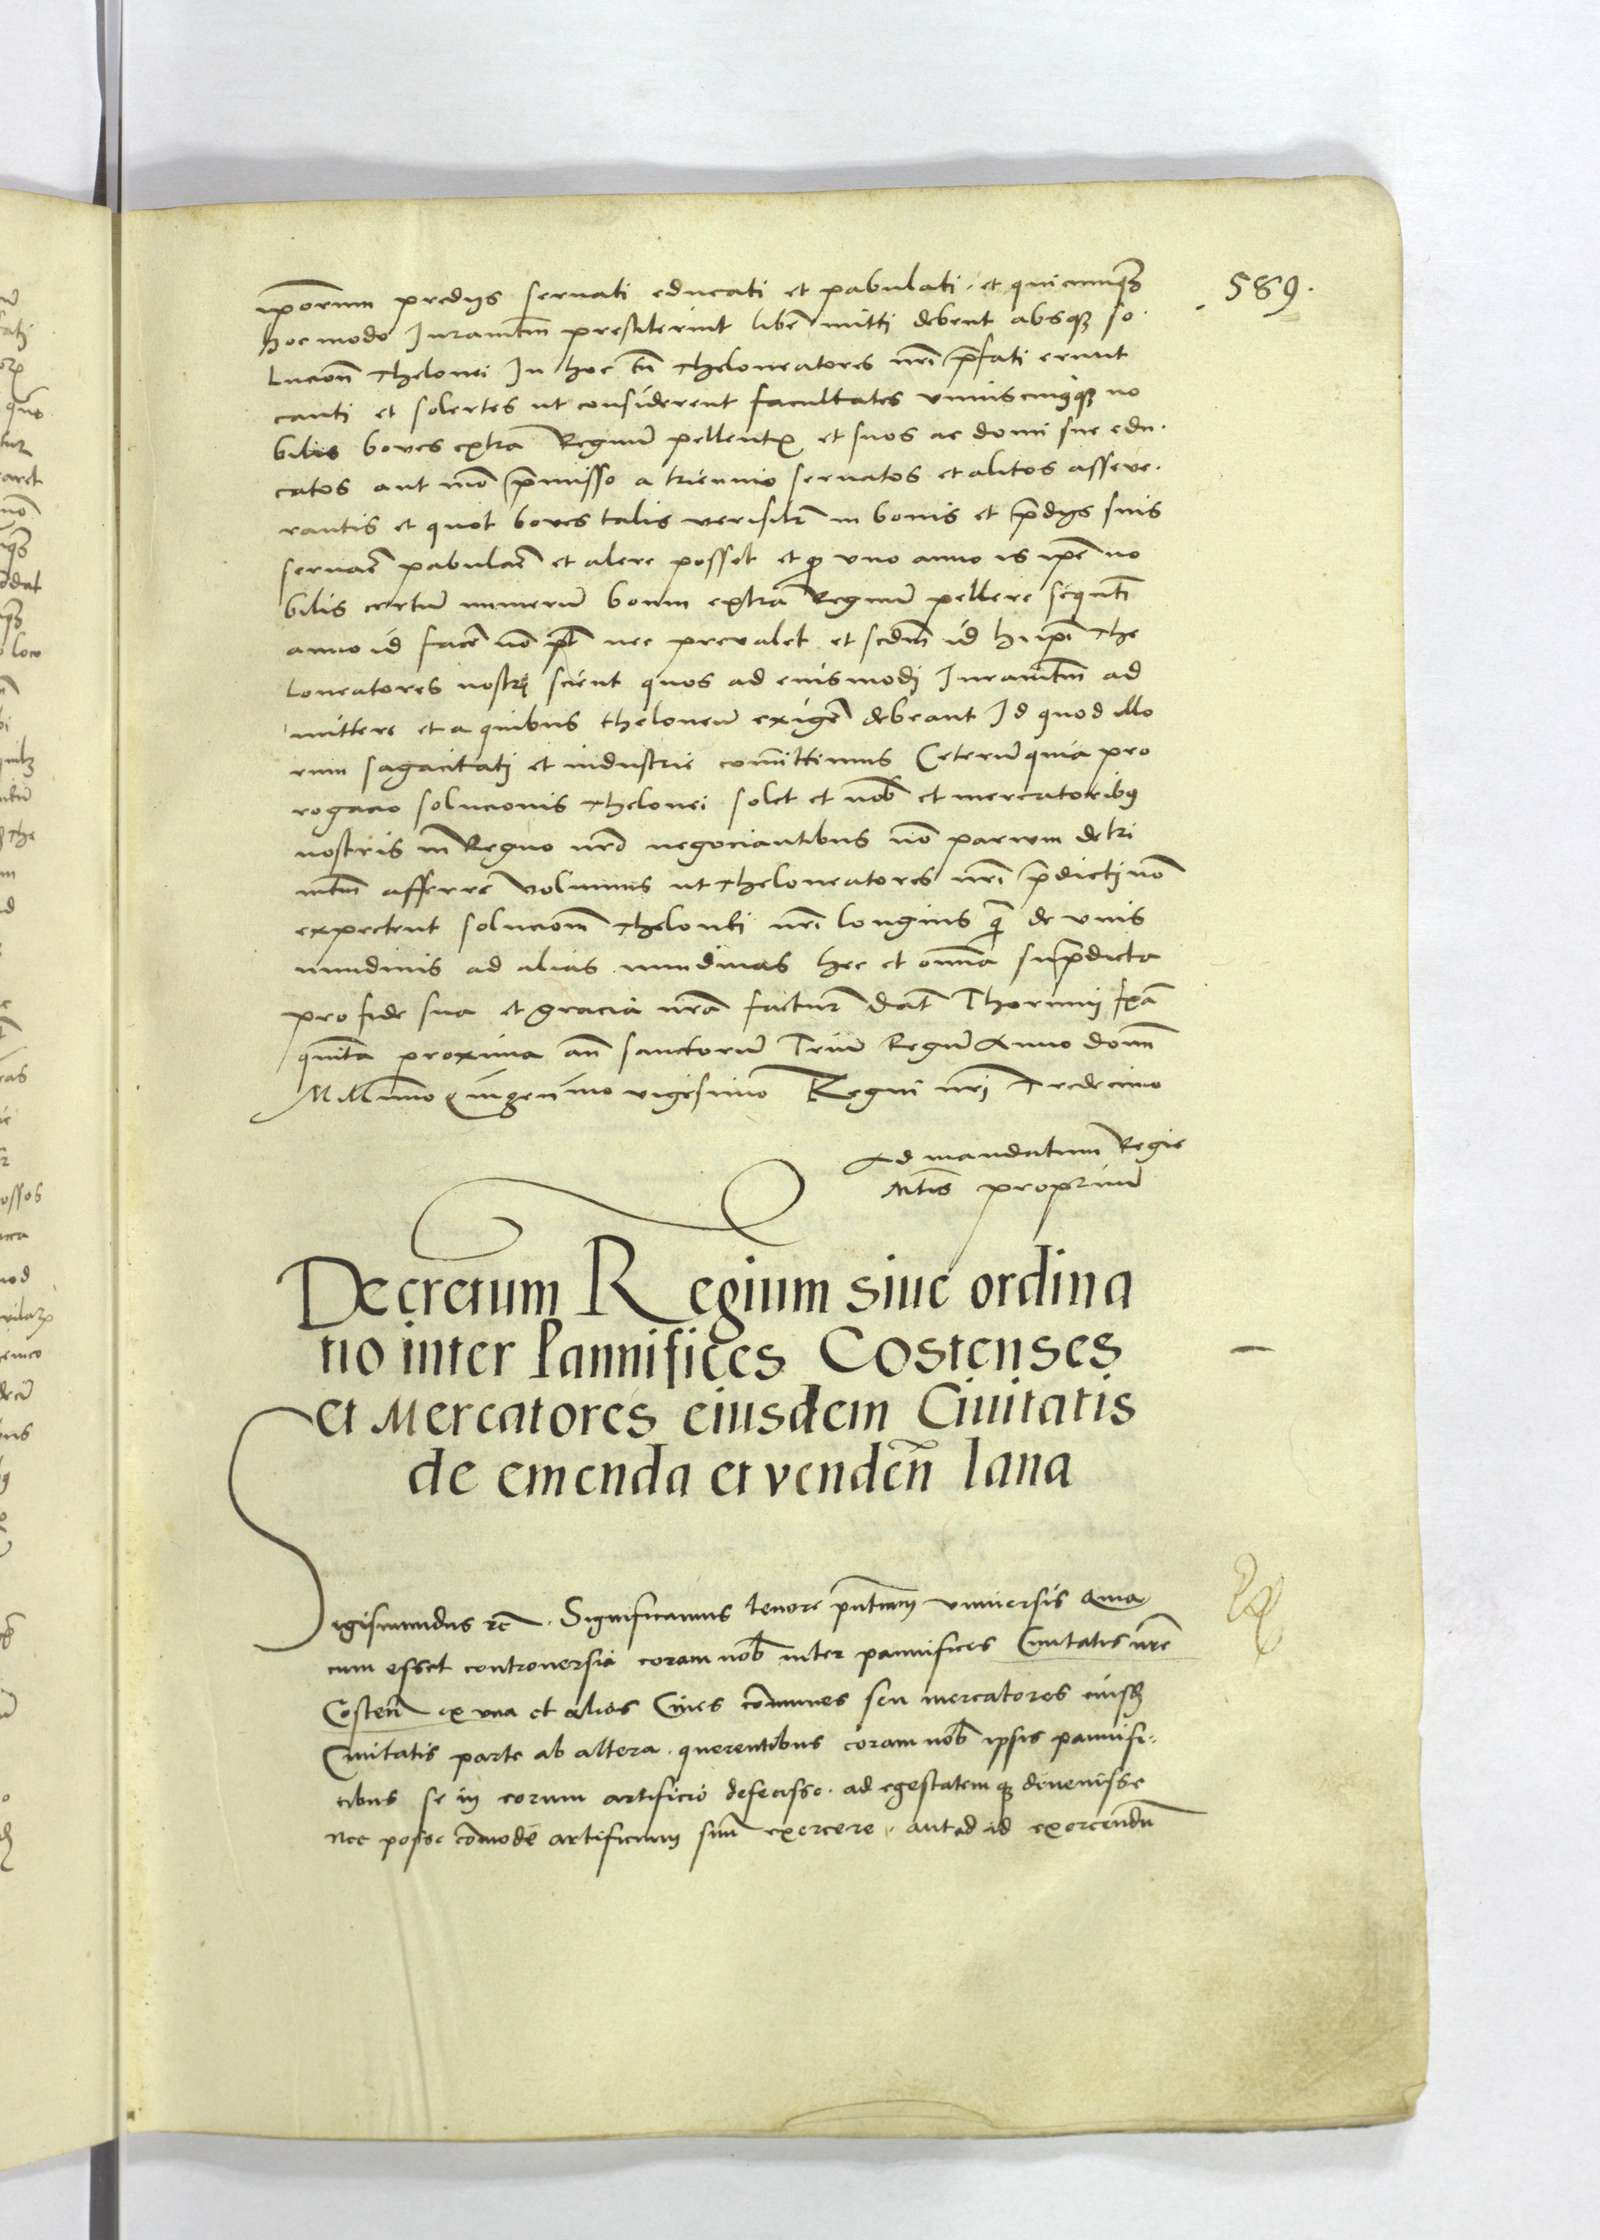 589.
ip̄orum predijs seruati educati et pabulati et quicunq3
hoc modo Iuramtm̄ prestiterint libē mitti debent absq3 so-
lucion̄ thelonei In hoc tn̄ theloneatores nrī p̄fati erunt
cauti et solertes ut considerent facultates vniuscuiusq3 no
bilis boues extra Regnū pellentꝫ et suos ac domi sue edu-
catos aut mō p̄misso a triennio seruatos et alitos asseve-
rantis et quot boues talis verisilr̄ in bonis et p̄dijs suis
seruaē pabulaē et alere posset et qꝫ vno anno is ipē no
bilis certū numerū boum extra Regnū pellere sequn̄ti
anno id facē nō pt̄ nec prevalet et scdm̄ id hij ipī the
loneatores nostri scient quos ad eiusmodi Iuramtm̄ ad
mittere et a quibus theloneū exigē debeant Id quod illo
rum sagacitati et industrie com̄ittimus Ceterū quia pro
rogacio solucionis thelonei solet et nob̄ et mercatoribꝫ
nostris in Regno nrō negociantibus nō parvum detri
mtm̄ afferre Volumus ut theloneatores nrī p̄dicti nō
expectent solucion̄ thelonei nrī longius qꝫ de vnis
nundinis ad alias nundinas hec et omīa sup̄dicta
pro fide sua et gracia nrā facturi Dat̄ Thorunij fr̄ia
quīta proxima an̄ sanctorū Triū Regū Anno domī
Mill̄imo Quingen̄mo vigesimo Regni nrī Tredecimo
Ad mandatum Regie
Mt̄is propriū
Decretum Regium siue ordina
tio inter Pannifices Costenses
et Mercatores eiusdem Ciuitatis
de emenda et vendēn lana
Sigismundus rc̄. Significamus tenore pn̄tium vniuersis Quia
cum esset controuersia coram nob̄ inter pannifices Ciuitatis nr̄e
Costen̄ ex vna et alios Ciues cōmunes seu mercatores eiusd̄
Ciuitatis parte ab altera. querentibus coram nob̄ ipsis pannifi-
cibus se in eorum artificio defecisse. ad egestatemq3 deuenisse
nec posse cōmode artificium suū exercere. aut ad id exercendū